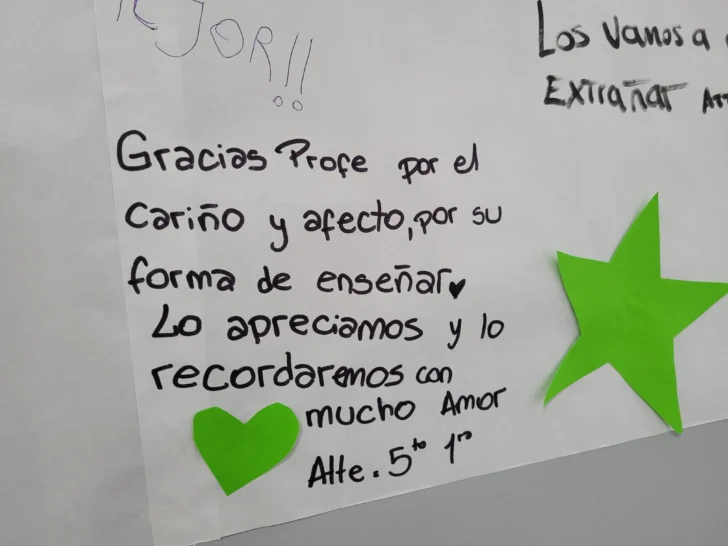 JOR!!
Los Vamos a
Extrañar
Gracias Profe por el
cariño y afecto, por su
forma de enseñar
Lo apreciamos y lo
recordaremos con
mucho Amor
Atte. 5to 1ro